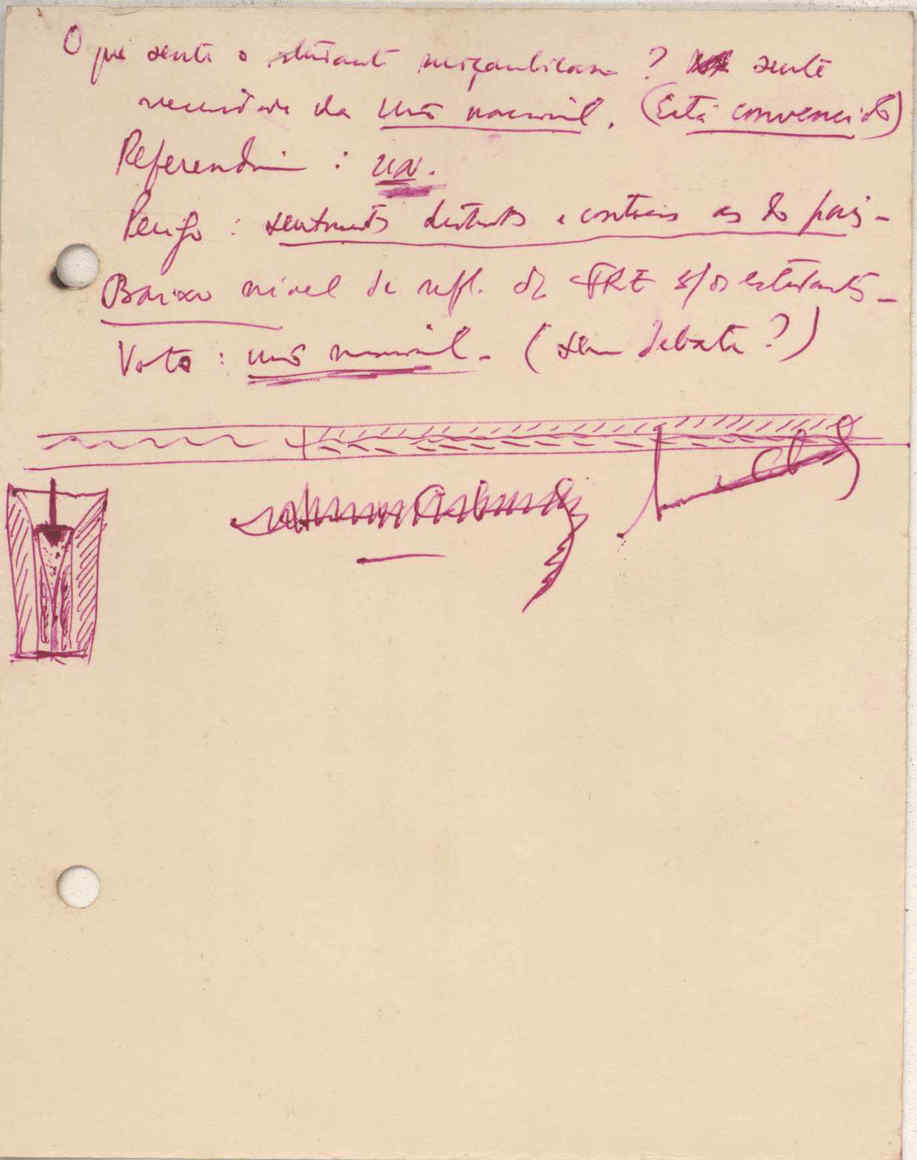 O que sente o estudante moçambicano ? sente
necessidade da união nacional. (Está convencido)
Referendo : un.
Perigo : sentimentos distintos e contrários aos do país -
Baixo nível de refl. da FRE s/ os estudantes -
Voto : união nacional - (sem debate ?)